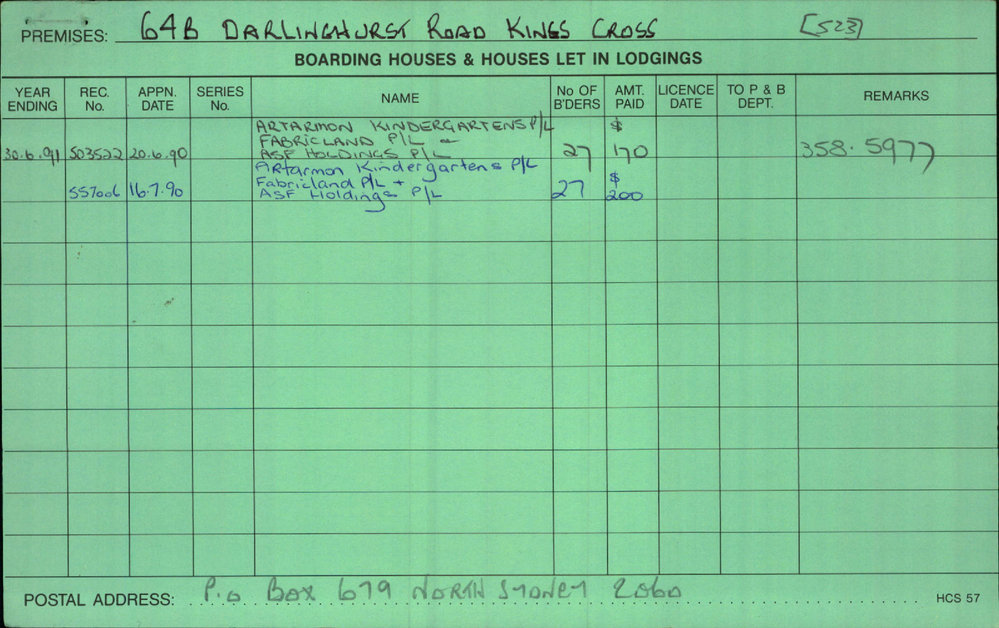 PREMISES: 64B DARLINGHURST ROAD KINGS CROSS [523]
BOARDING HOUSES & HOUSES LET IN LODGINGS
YEAR ENDING REC. No. APPN. DATE SERIES No. NAME No OF B'DERS AMT. PAID LICENCE DATE TO P & B DEPT. REMARKS
ARTARMON KINDERGARTENS P/L $
FABRICLAND P/L
30.6.91 503522 20.6.90 ASF HOLDINGS P/L 27 170 358.5977
Artarmon Kindergartens P/L
Fabricland P/L + $
557006 16.7.90 ASF Holdings P/L 27 200
POSTAL ADDRESS: P.O Box 679 NORTH SYDNEY 2060
HCS 57